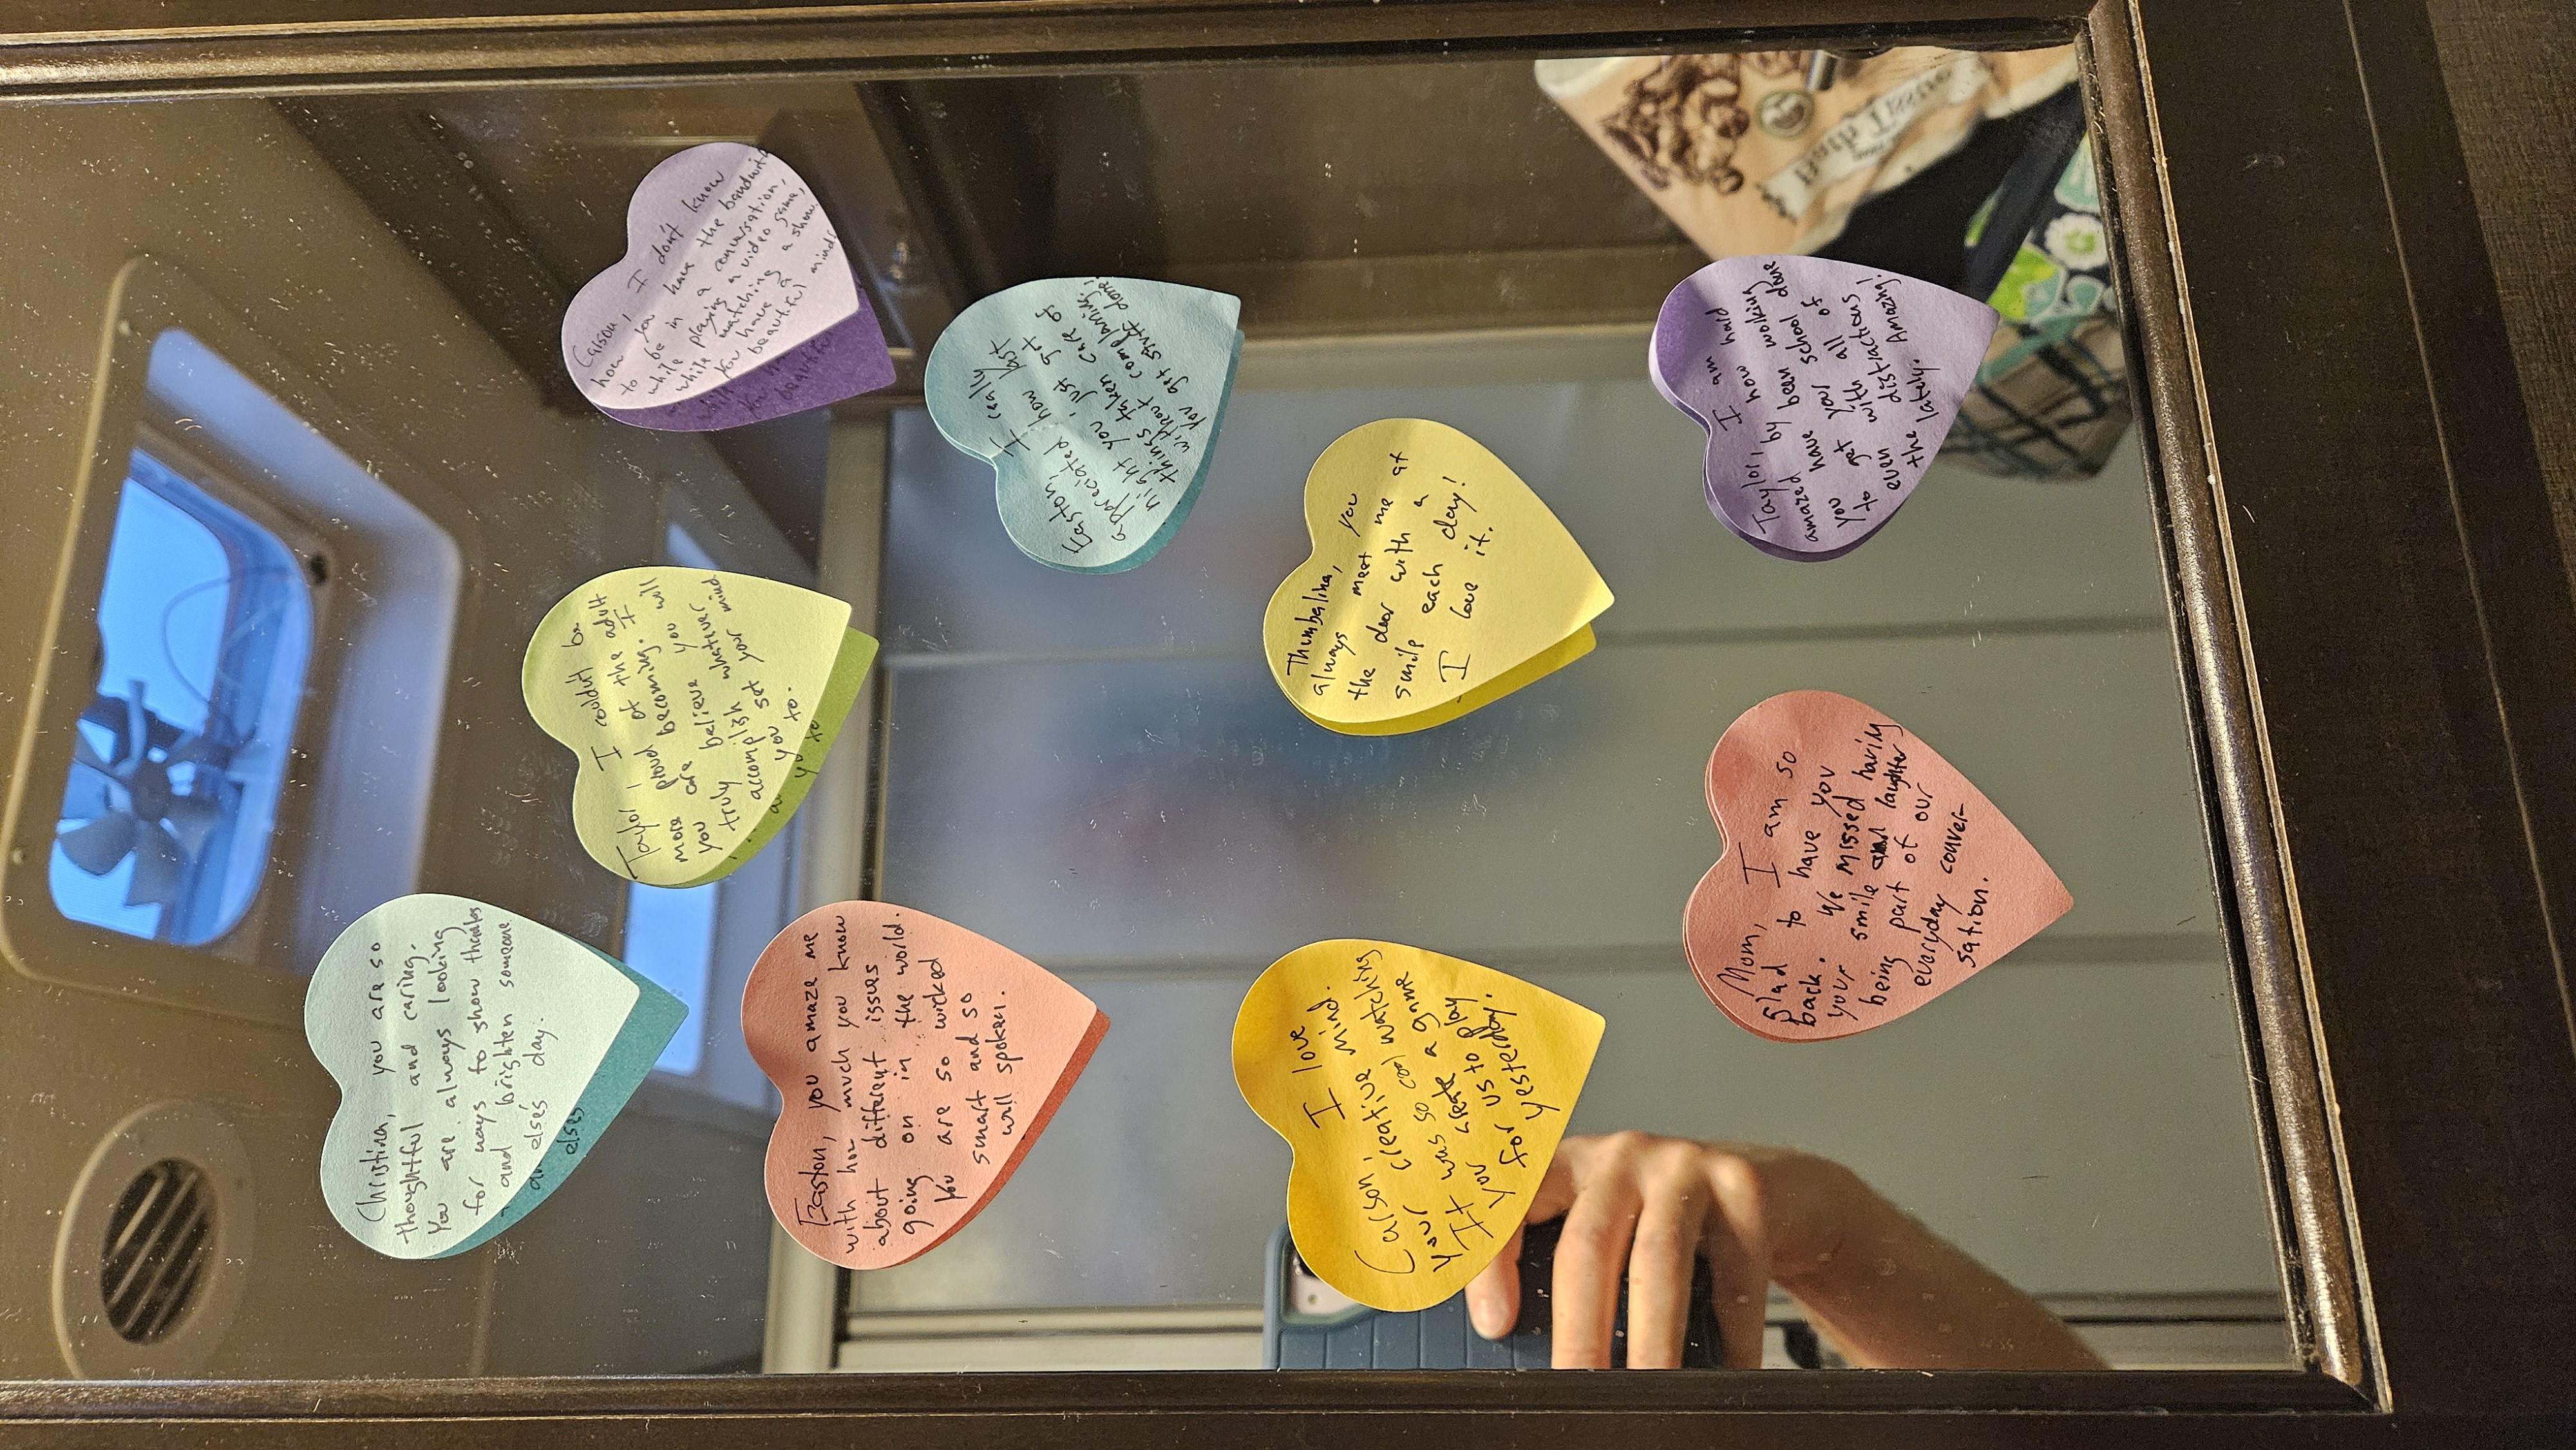 Christina, you are so
thoughtful and caring.
You are always looking
for ways to show thanks
and brighten someone
else's day.
Taylor, I couldn't be
more proud of the adult
you are becoming. I
truly believe you will
accomplish whatever
you set your mind
to.
Carson, I don't know
how you have the bandwith
to be in a conversation,
while playing a video game,
while watching a show.
You have a
beautiful mind!
Easton, you amaze me
with how much you know
about different issues
going on in the world.
You are so wicked
smart and so
well spoken.
Easton, I really
appreciated how last
night you just got
things taken care of
without complaining.
You get stuff done!
Carson, I love
your creative mind.
It was so cool watching
you create a game
for us to play
yesterday.
Thumbalina, you
always meet me at
the door with a
smile each day!
I love it.
Mom, I am so
glad to have you
back. We missed
your smile and laughter having
being part of our
everyday conver-
sation.
Taylor, I am
amazed by how hard
you have been working
to get your school done
even with all of
the distractions
lately. Amazing!